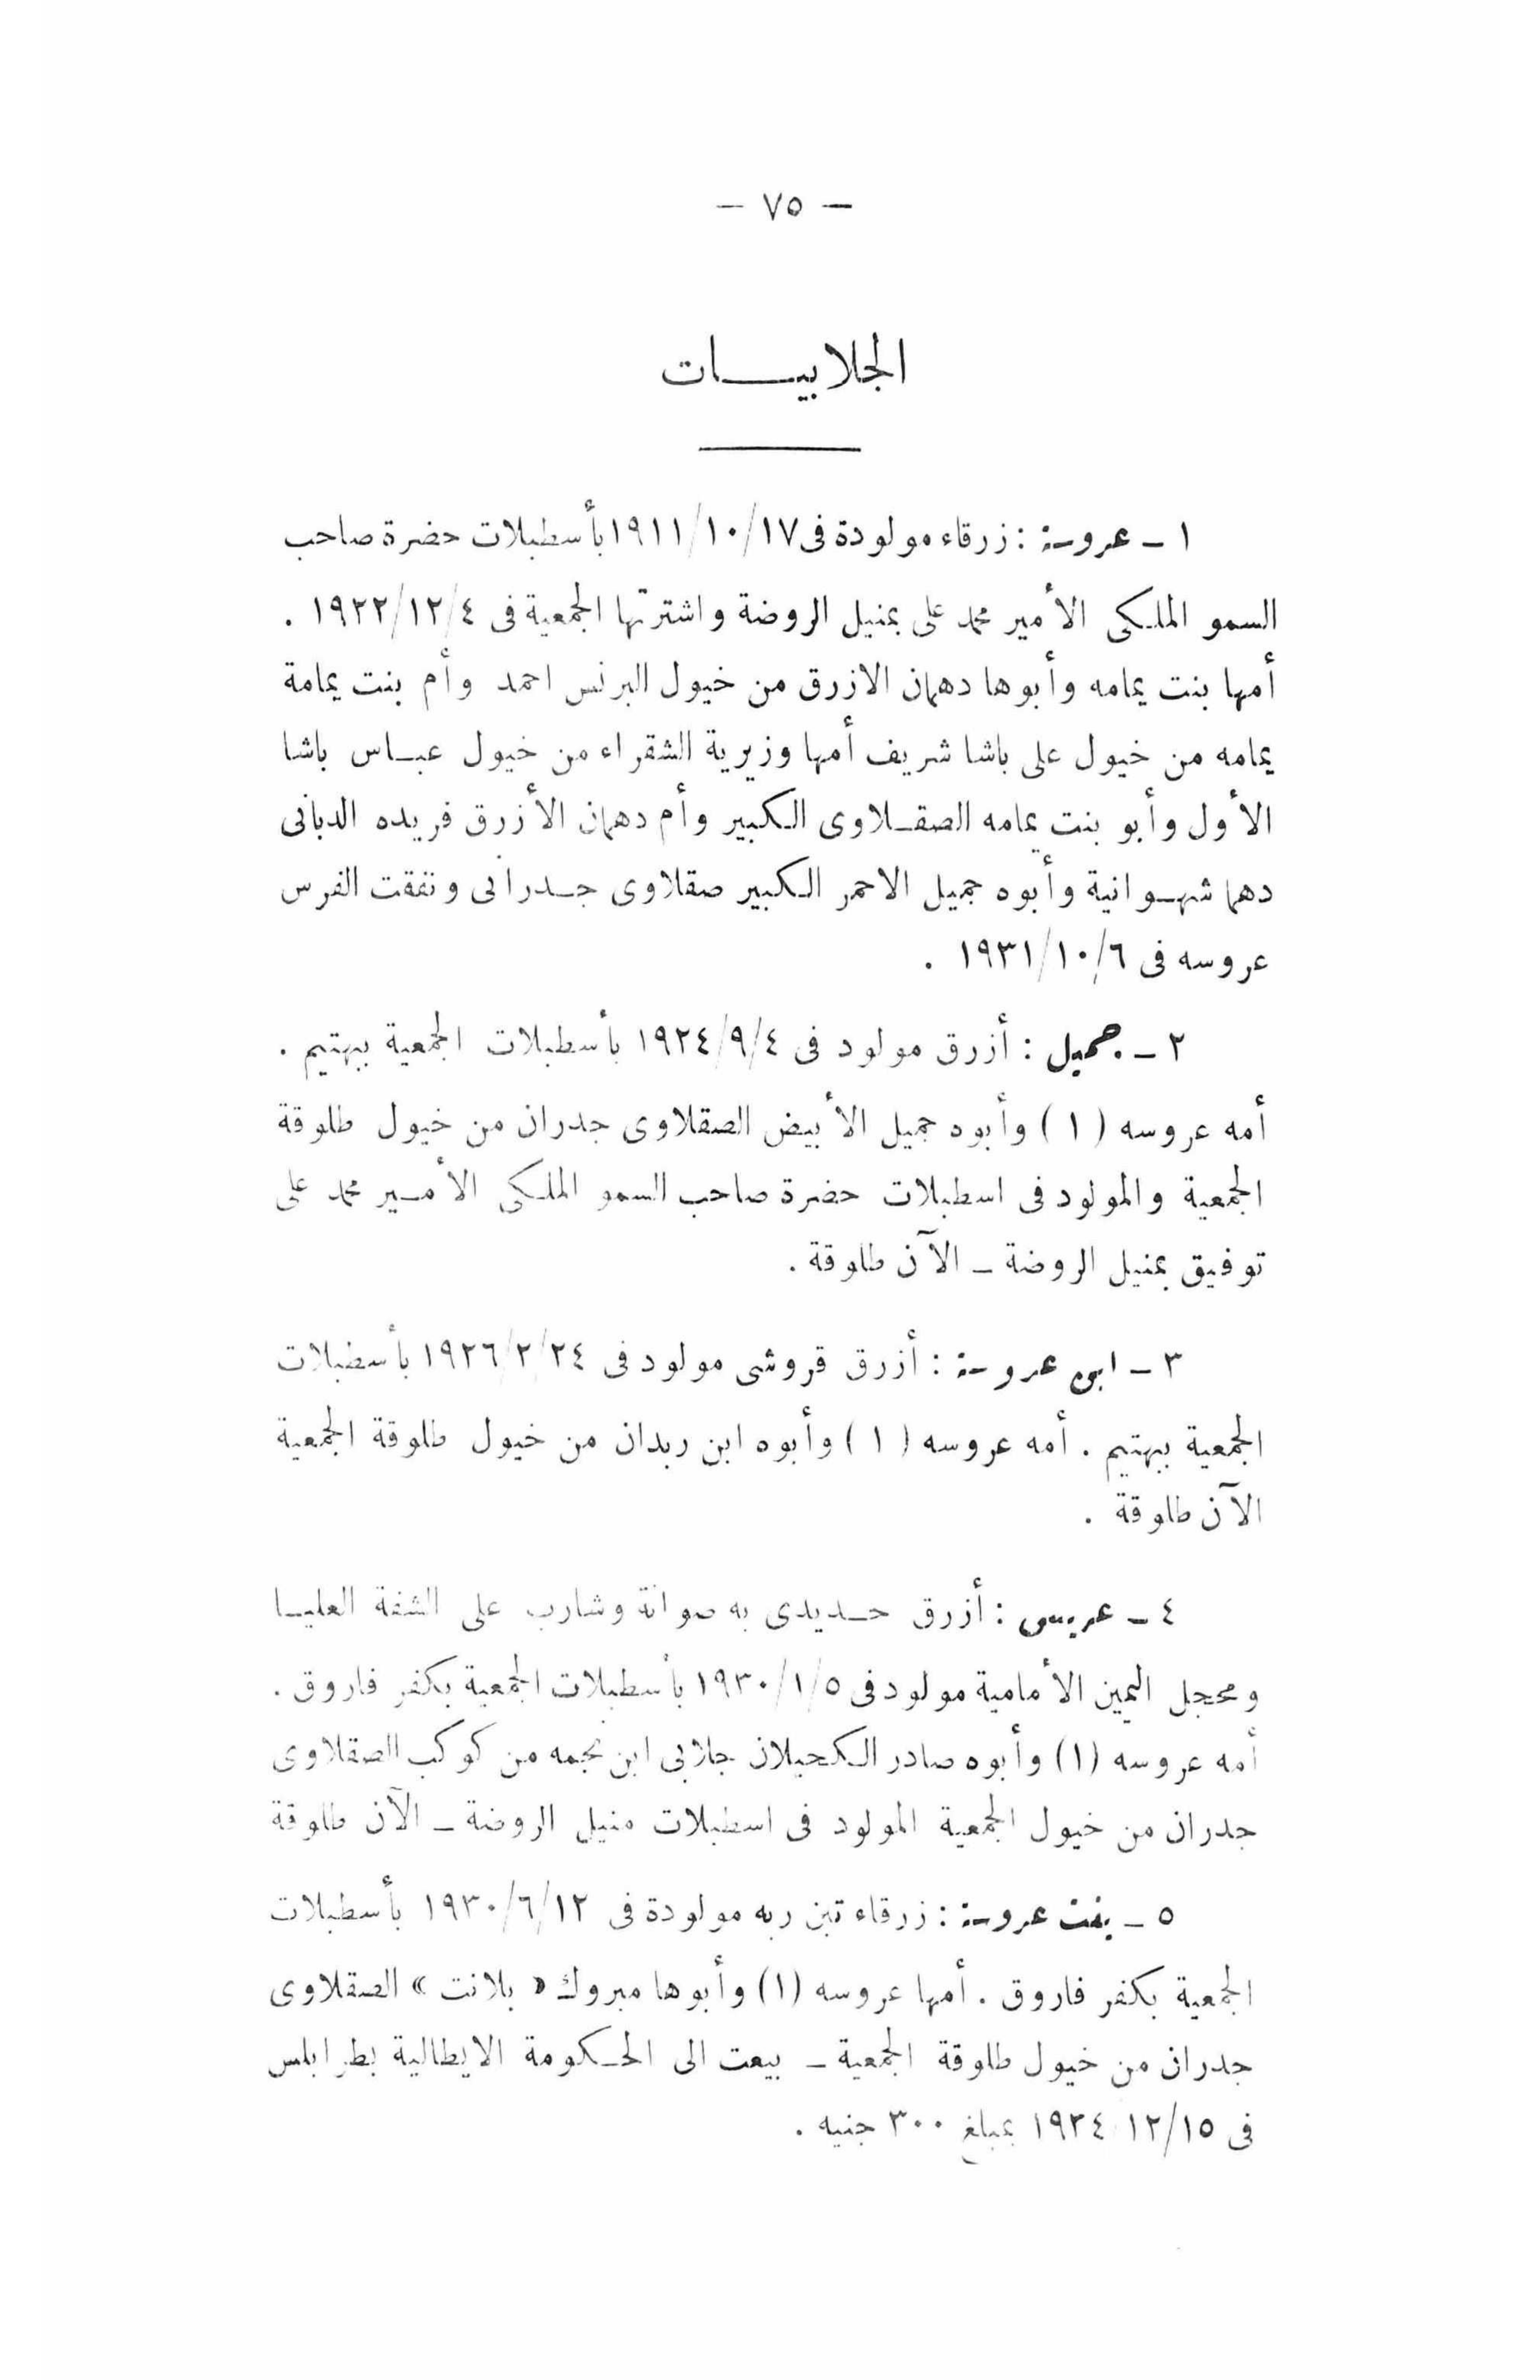 — ٧٥ —
الجلابيـــات
١ ـ عروسة : زرقاء مولودة فى ١٩١١/١٠/١٧ بأسطبلات حضرة صاحب
السمو الملكى الأمير محمد على بمنيل الروضة واشترتها الجمعية فى ١٩٢٢/١٢/٤ .
أمها بنت يمامه وأبوها دهمان الازرق من خيول البرنس احمد وأم بنت يمامة
يمامه من خيول على باشا شريف أمها وزيرية الشقراء من خيول عبـاس باشا
الأول وأبو بنت يمامه الصقـلاوى الكبير وأم دهمان الأزرق فريده الدبانى
دهما شهـوانية وأبوه جميل الاحمر الكبير صقلاوى جـدرانى ونفقت الفرس
عروسه فى ١٩٣١/١٠/٦ .
٢ ـ جميل : أزرق مولود فى ١٩٢٤/٩/٤ بأسطبلات الجمعية ببهتيم .
أمه عروسه ( ١ ) وأبوه جميل الأبيض الصقلاوى جدران من خيول طلوقة
الجمعية والمولود فى اسطبلات حضرة صاحب السمو الملكى الأمـير محمد على
توفيق بمنيل الروضة ـ الآن طلوقة .
٣ ـ ابن عروسة : أزرق قروشى مولود فى ١٩٢٦/٢/٢٤ بأسطبلات
الجمعية ببهتيم . أمه عروسه ( ١ ) وأبوه ابن ربدان من خيول طلوقة الجمعية
الآن طلوقة .
٤ ـ عريس : أزرق حـديدى به صوانة وشارب على الشفة العليـا
ومحجل اليمين الأمامية مولود فى ١٩٣٠/١/٥ بأسطبلات الجمعية بكفر فاروق .
أمه عروسه (١) وأبوه صادر الكحيلان جلابى ابن نجمه من كوكب الصقلاوى
جدران من خيول الجمعية المولود فى اسطبلات منيل الروضة ـ الآن طلوقة
٥ ـ بنت عروسة : زرقاء تبن ربه مولودة فى ١٩٣٠/٦/١٢ بأسطبلات
الجمعية بكفر فاروق . أمها عروسه (١) وأبوها مبروك « بلانت » الصقلاوى
جدران من خيول طلوقة الجمعية ـ بيعت الى الحـكومة الايطالية بطرابلس
فى ١٢/١٥ ١٩٣٤ بمبلغ ٣٠٠ جنيه .